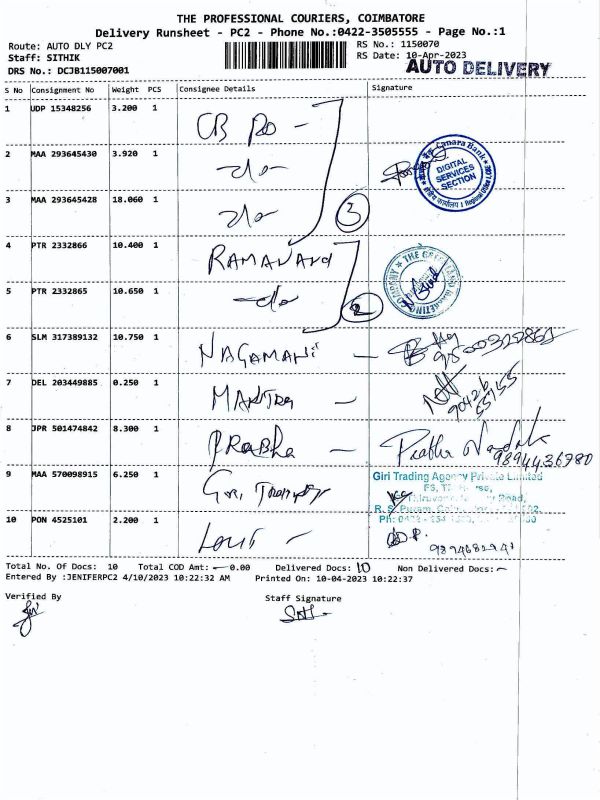 THE PROFESSIONAL COURIERS, COIMBATORE
Delivery Runsheet - PC2 - Phone No.:0422-3505555 - Page No.:1
Route: AUTO DLY PC2
RS No.: 1150070
Staff: SITHIK
RS Date: 10-Apr-2023
DRS No.: DCJB115007001
AUTO DELIVERY
S No Consignment No Weight PCS Consignee Details Signature
1 UDP 15348256 3.200 1 CB RO -
2 MAA 293645430 3.920 1 -do-
Canara Bank
DIGITAL
SERVICES
SECTION
3 MAA 293645428 18.060 1 -do-
3
4 PTR 2332866 10.400 1 RAMANAND
5 PTR 2332865 10.650 1 -do-
2
6 SLM 317389132 10.750 1 NAGAMANI -
7 DEL 203449885 0.250 1 MANTRA -
90426
55755
8 JPR 501474842 8.300 1 PRABHA -
9894436980
9 MAA 570098915 6.250 1 Giri Trading
Giri Trading Agency Private Limited
10 PON 4525101 2.200 1
Total No. Of Docs: 10 Total COD Amt: 0.00 Delivered Docs: 10 Non Delivered Docs: -
Entered By :JENIFERPC2 4/10/2023 10:22:32 AM Printed On: 10-04-2023 10:22:37
Verified By
Staff Signature